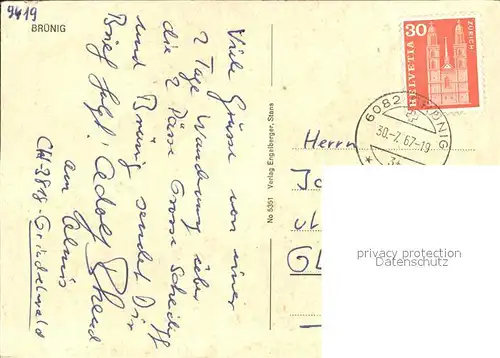 9419
BRÜNIG
Viele Grüsse von einer
2 Tage Wanderung über
die 2 Pässe Grosse Scheidegg
und Brünig sendet Dir
Brief folgt! Adolf
am
CH-3818-Grindelwald
No 5351 Verlag Engelberger, Stans
30
HELVETIA
ZÜRICH
6082 BRÜNIG
30.-7.67-19
Herrn
privacy protection
watermark